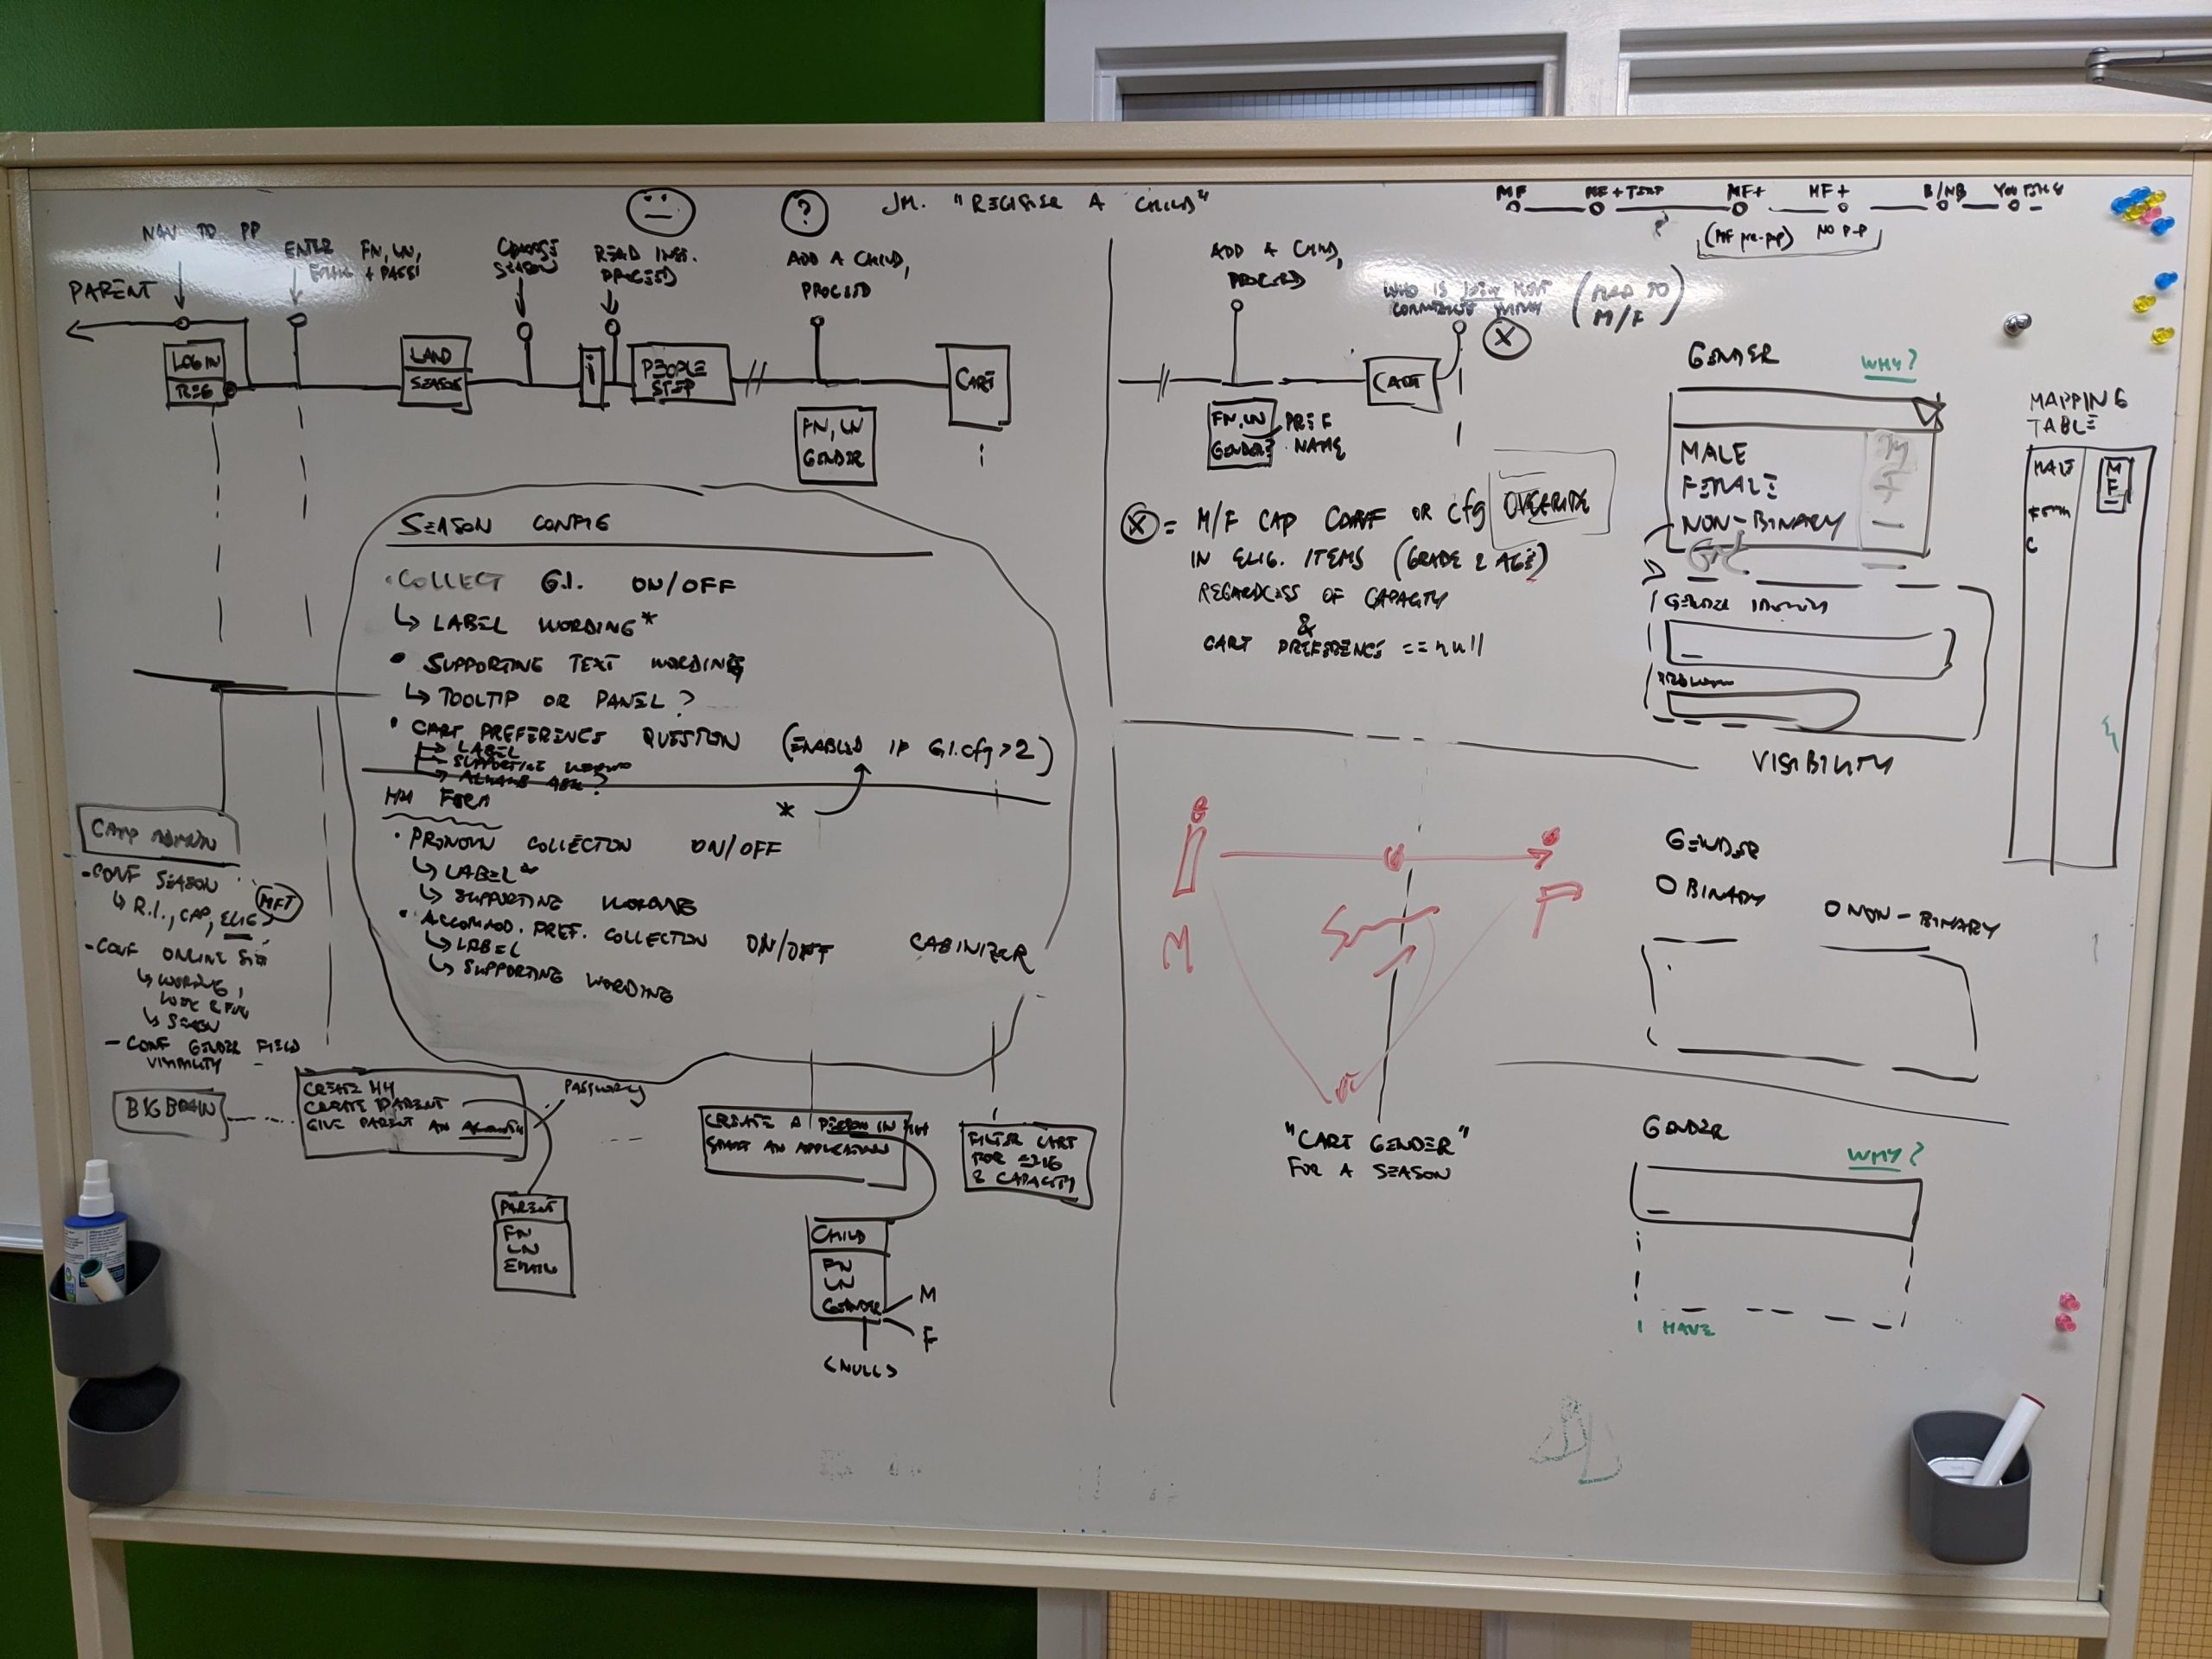 JM. "REGISTER A CHILD"
NAV TO PP
PARENT
ENTER FN, LN,
EMAIL + PASS
CHOOSE
SEASON
READ INST.
PROCEED
?
ADD A CHILD,
PROCEED
LOGIN
REG
LAND
SEASON
i
PEOPLE
STEP
FN, LN
GENDER
CART
SEASON CONFIG
COLLECT G.I. ON/OFF
LABEL WORDING*
SUPPORTING TEXT WORDING
TOOLTIP OR PANEL?
CART PREFERENCE QUESTION (ENABLED IF G.I.cfg>2)
LABEL
SUPPORTING WORDING
ALWAYS ASK?
HH FORM
*
PRONOUN COLLECTION ON/OFF
LABEL*
SUPPORTING WORDING
ACCOMMOD. PREF. COLLECTION ON/OFF CABINIZER
LABEL
SUPPORTING WORDING
CAMP ADMIN
- CONF SEASON
R.I., CAP, ELIG
MFT
- CONF ONLINE
WORDING,
SEASON
- CONF GENDER FIELD
VISIBILITY
BIG BRAIN
CREATE HH
CREATE PARENT
GIVE PARENT AN
PARENT
FN
LN
EMAIL
CREATE A PERSON IN HH
START AN APPLICATION
CHILD
FN
LN
GENDER
M
F
<NULL>
FILTER CART
FOR ELIG
& CAPACITY
ADD A CHILD,
PROCEED
WHO IS
(MAP TO
M/F)
X
FN, LN
GENDER?
PREF
NAME
CART
X = M/F CAP CONF OR cfg OVERRIDE
IN ELIG. ITEMS (GRADE & AGE)
REGARDLESS OF CAPACITY
&
CART PREFERENCE == null
M
F
"CART GENDER"
FOR A SEASON
MF
MF + TEXT
MF+
(MF pre-pop)
MF +
NO P-P
B/NB
GENDER
WHY?
MALE
FEMALE
NON-BINARY
M
F
GENDER IDENTITY
VISIBILITY
GENDER
BINARY
NON-BINARY
GENDER
WHY?
I HAVE
MAPPING
TABLE
MALE
M
F
C